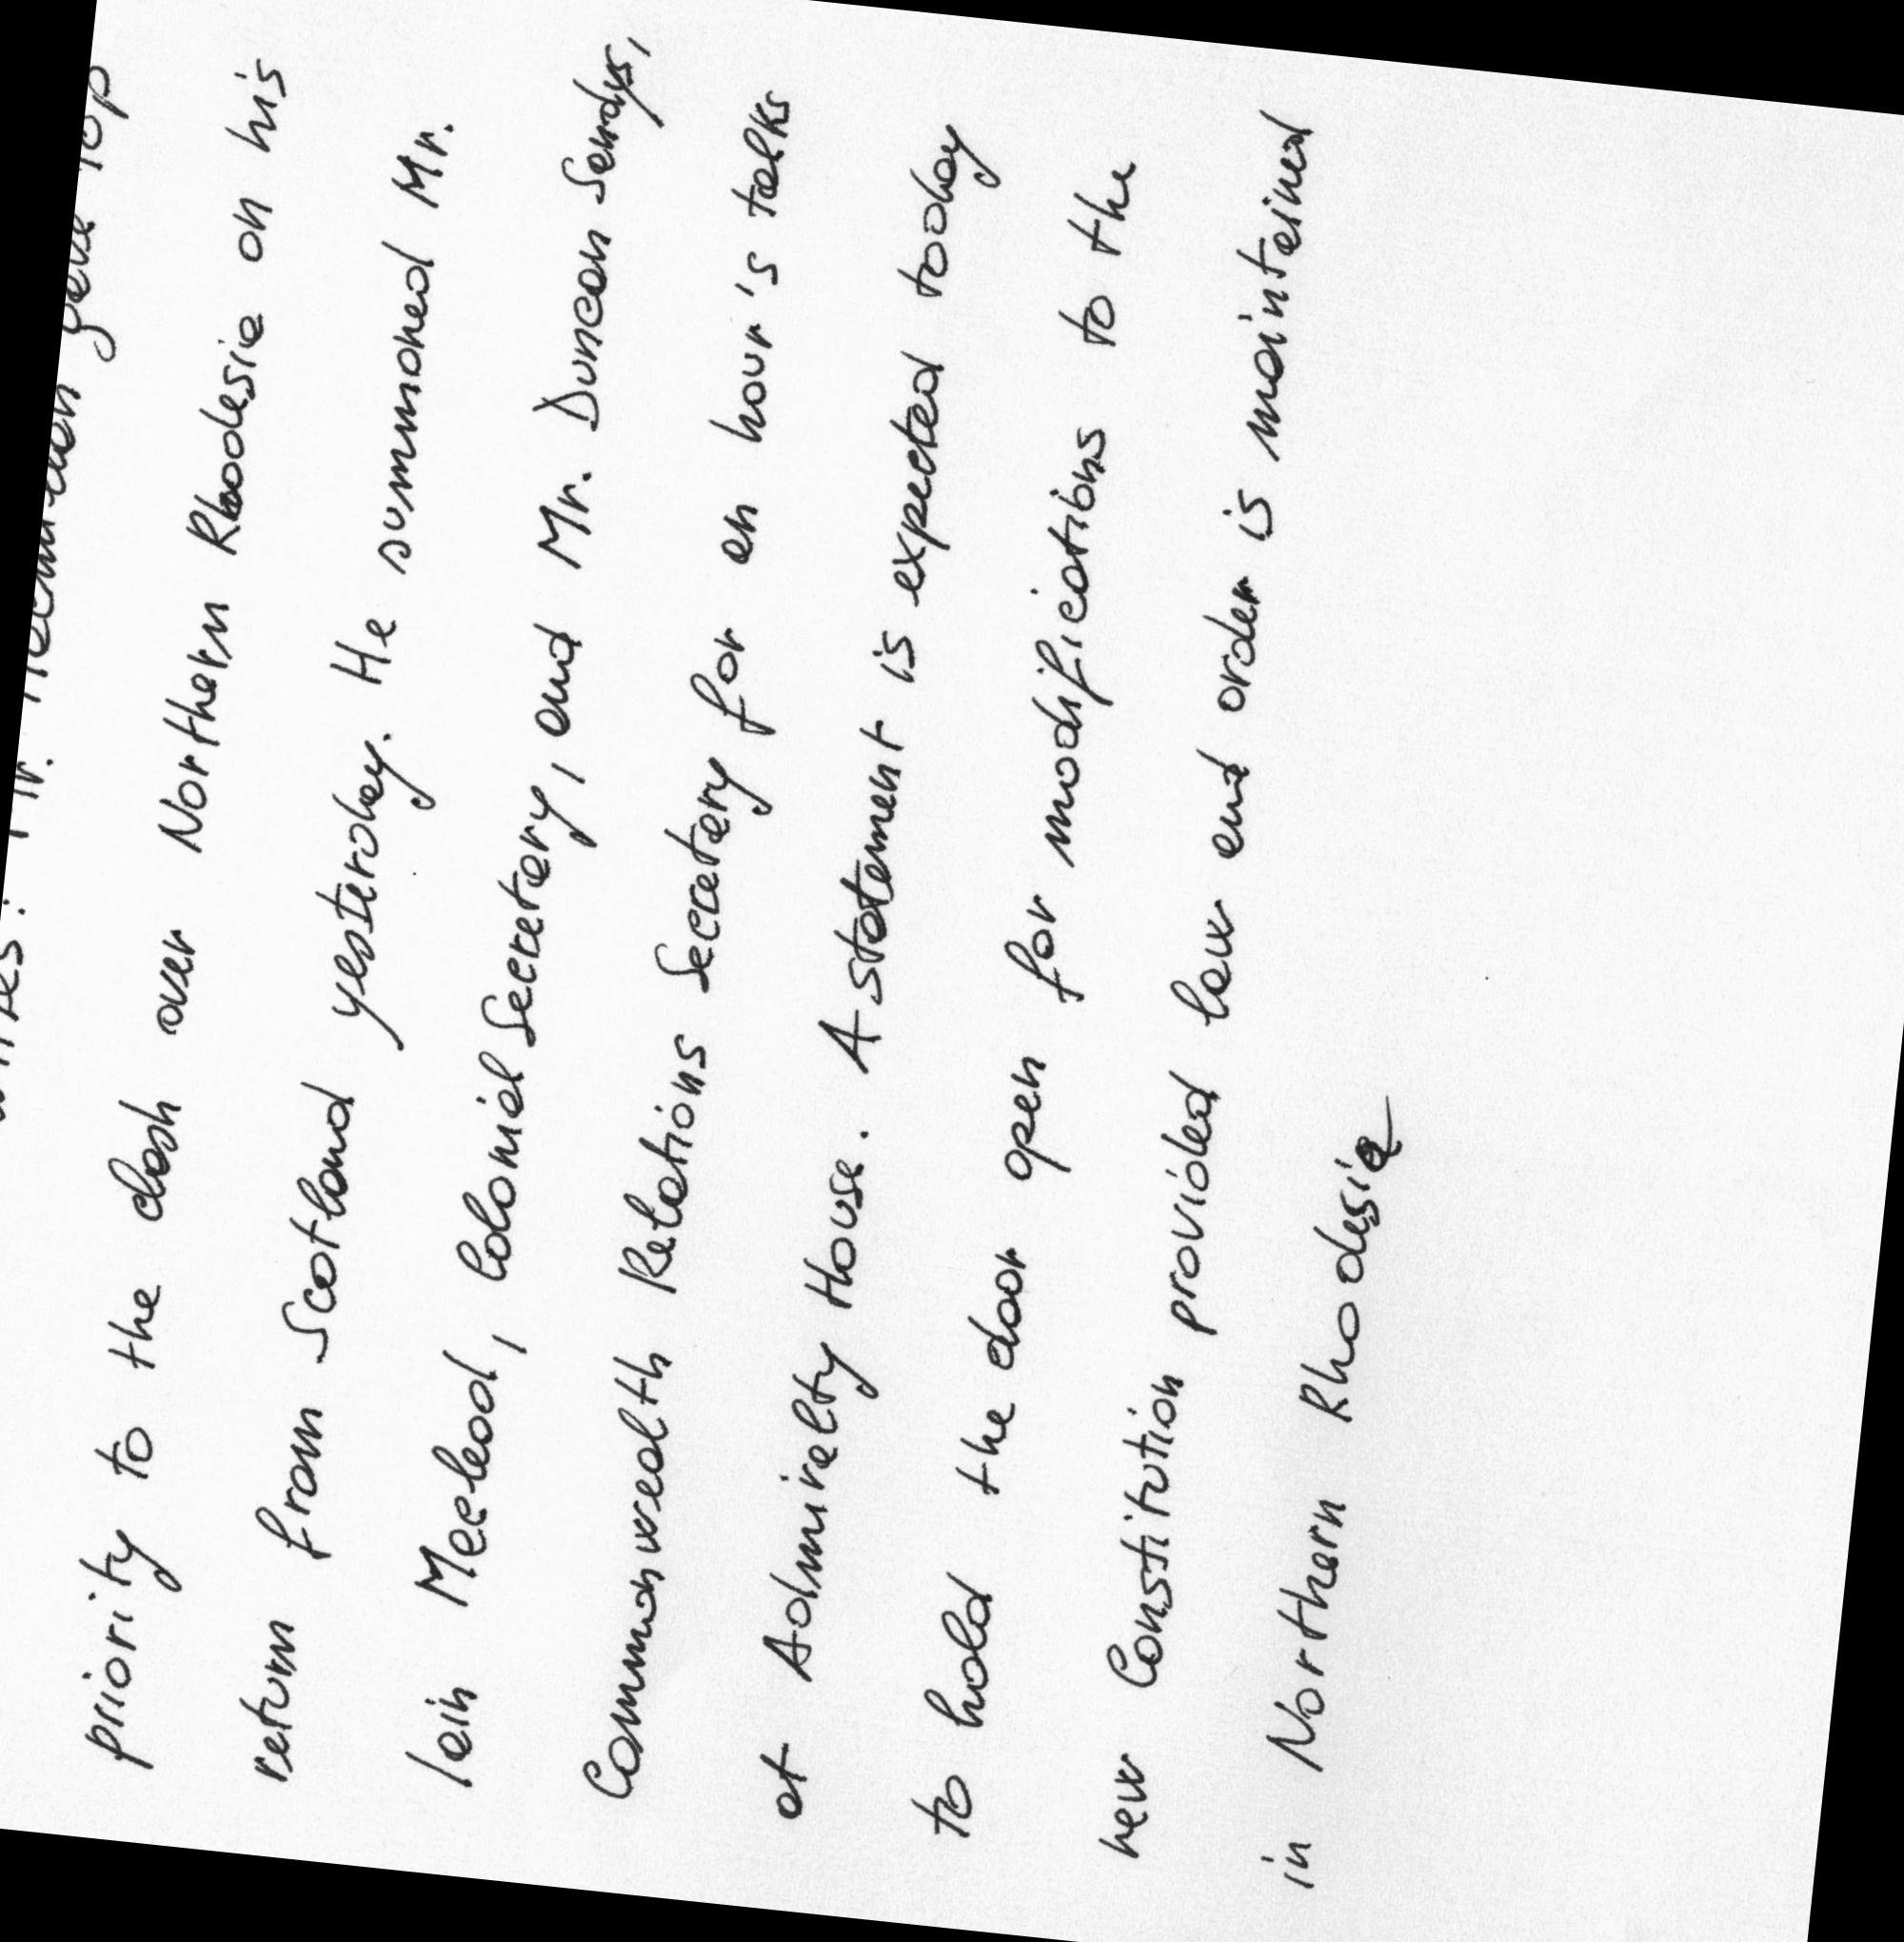 Mr. Macmillan gave top
priority to the clash over Northern Rhodesia on his
return from Scotland yesterday. He summoned Mr.
Iain Macleod, Colonial Secretary, and Mr. Duncan Sandys,
Commonwealth Relations Secretary for an hour's talks
at Admiralty House. A statement is expected today
to hold the door open for modifications to the
new Constitution provided law and order is maintained
in Northern Rhodesia